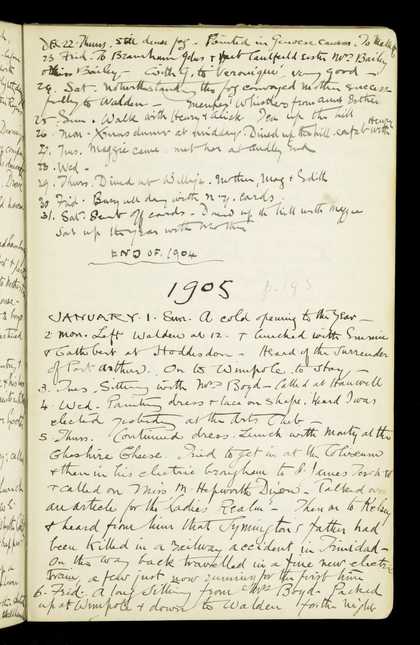 22. Thurs. Still dense fog - Painted in
23 Frid. To Bramham Gdns & met Caulfeild sister Mrs Bailey
Bailey - with G. to 'Veronique'. very good -
24. Sat. Notwithstanding the fog conveyed Mother success
fully to Walden - Whistler from aunt Esther
25. Sun. Walk with Henry & Tea up the hill
26. Mon - Xmas dinner at midday. Dined up the hill with Henry
27. Tues. Maggie came - met her at Audley End
28. Wed -
29. Thurs. Dined at Mother, Mag & Edith
30. Frid. Busy all day with N.Y. cards
31. Sat. Sent off cards - Dined up the hill with Maggie
Sat up the year with Mother
END OF. 1904
1905
p. 193
JANUARY 1. Sun. A cold opening to the Year -
2 Mon. Left Walden at 12 - & lunched with
& Cuthbert at Hoddesdon - Heard of the Surrender
of Port Arthur. On to Wimpole to stay -
3. Tues. Sitting with Mrs Boyd - Called at Hanwell
4. Wed. Painting dress & lace on shape. Heard I was
elected yesterday at the Arts Club -
5 Thurs. Continued dress. Lunch with Monty at the
Cheshire Cheese. Tried to get in at the Coliseum
& then in his electric brougham to St James
& called on Miss M. Hepworth Dixon - Talked over
an article for the 'Ladies Realm' - Then on to
& heard from him that Symington's father had
been killed in a railway accident in Trinidad -
On the way back travelled in a fine new electric
train, a few just now running for the first time
6. Frid. A long sitting from Mrs Boyd - Packed
up at Wimpole & down to Walden for the night